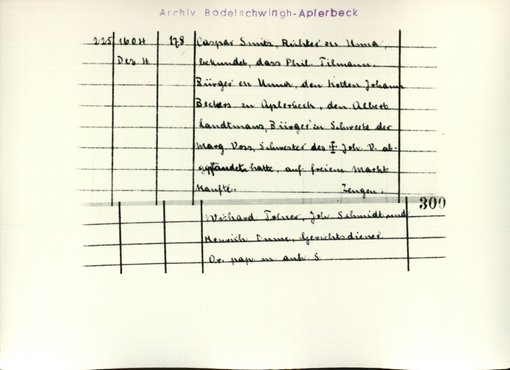 Archiv Bodelschwingh-Aplerbeck
225 1604 178 Caspar Smits, Richter en Unna,
Dez 4 bekundet, dass Phil. Tilmann.
Bürger en Unna, den Kotten Johann
Beckers en Aplerbeck, den Albert
Landtmans, Bürger en Schwerte der
Marg Vors, Schwester des Joh V. ab-
gepfändet hatte, auf freiem Markt
kaufte. Zeugen.
300
Wichard Tolner, Joh Schmidt, und
Henrich Dume, Gerichtsdiener
Or. pap m anh S